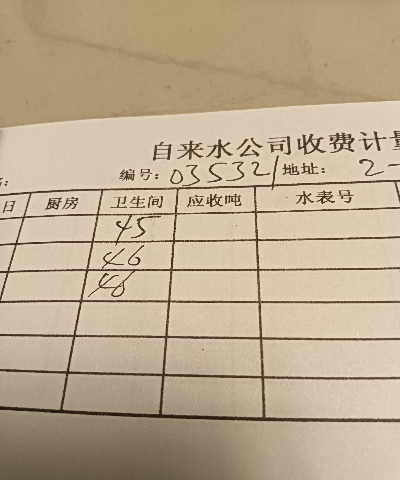 自来水公司收费计
编号: 035321 地址: 2-
日 厨房 卫生间 应收吨 水表号
45
46
46